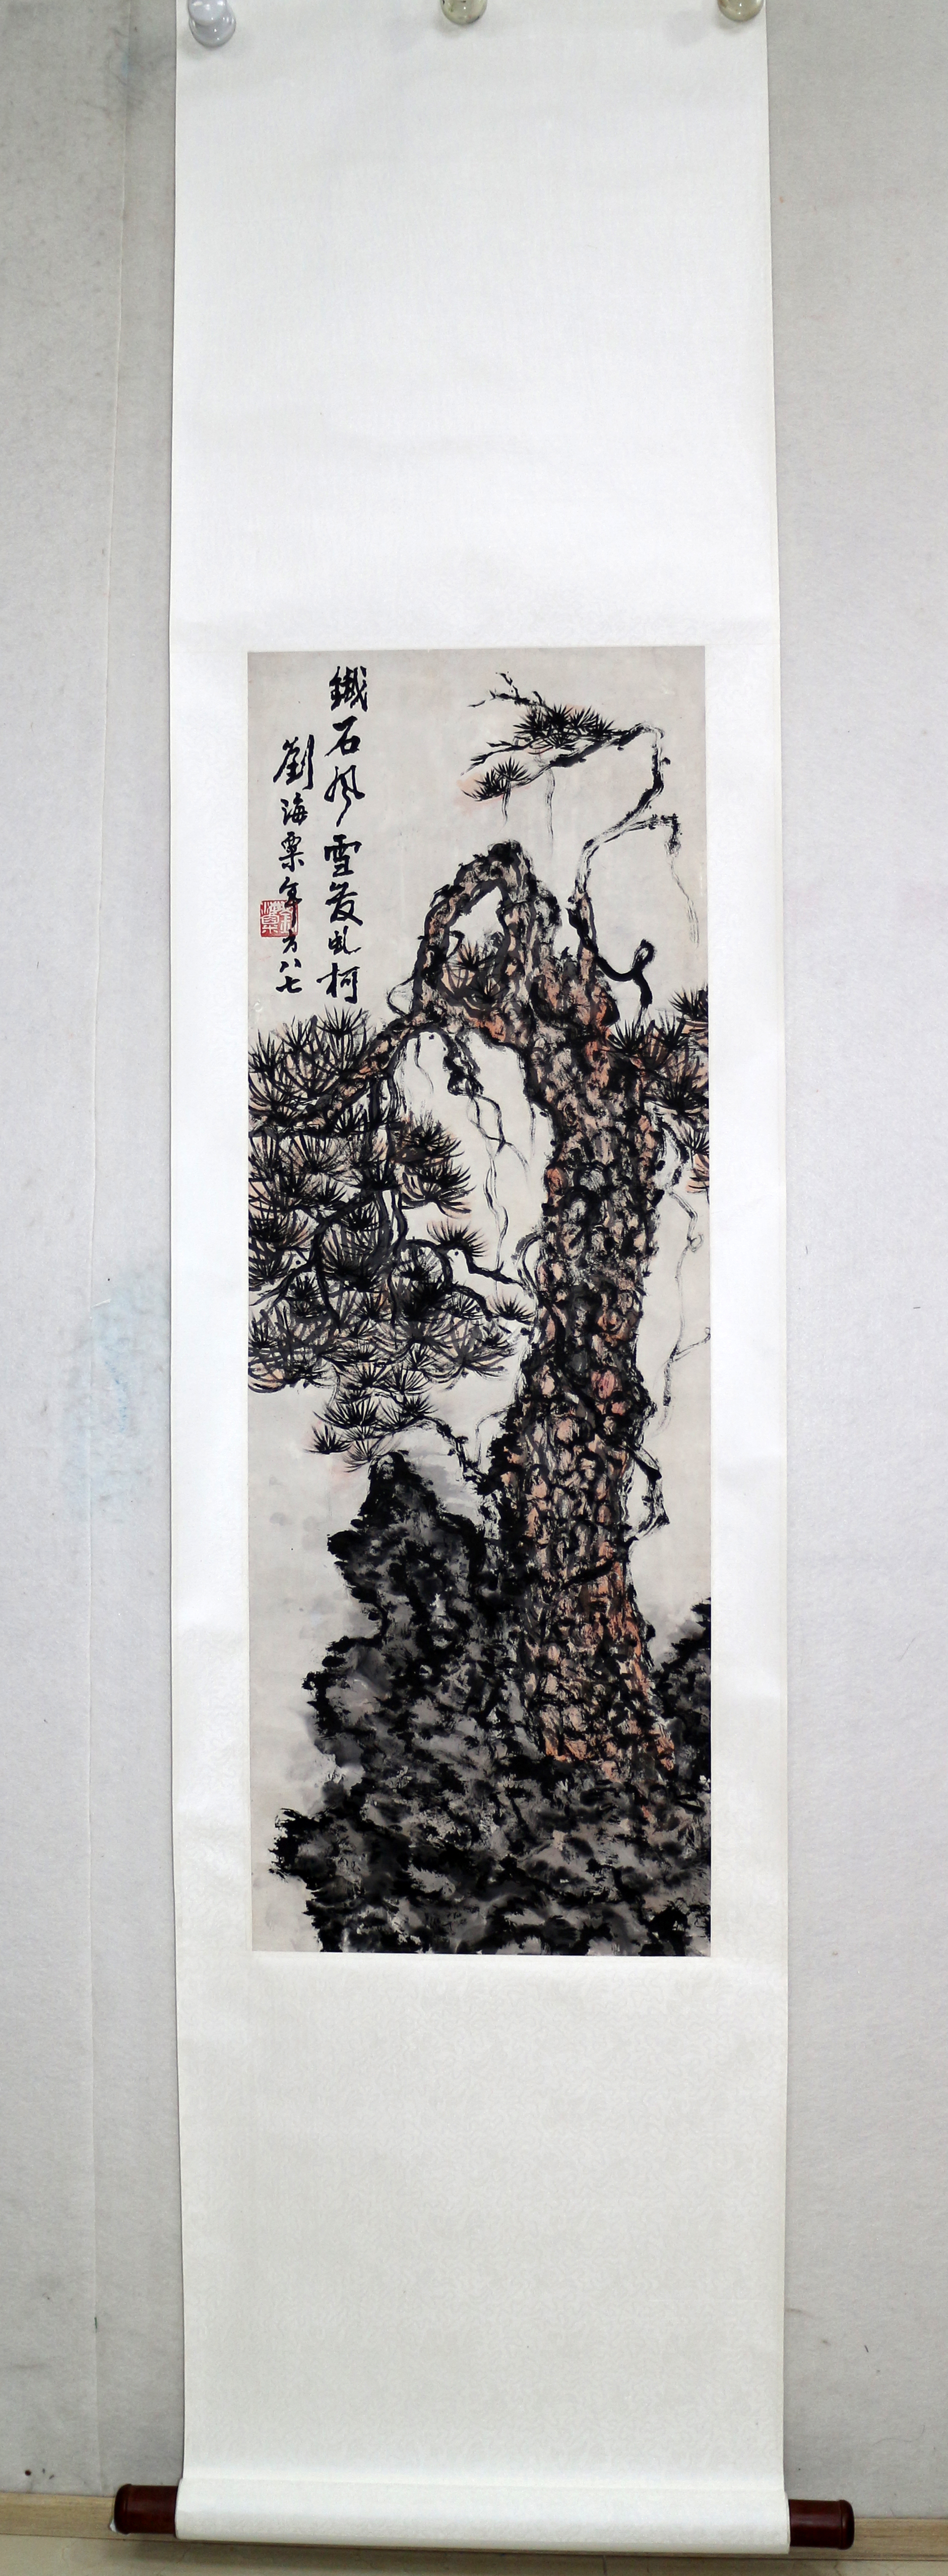 鐵石風雪發虬柯
劉海粟年方八七